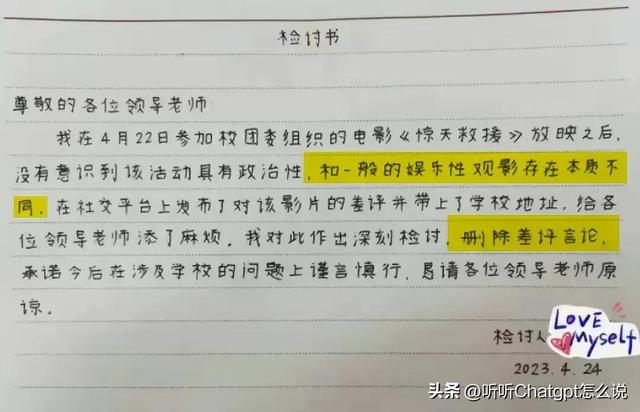 检讨书
尊敬的各位领导老师
我在4月22日参加校团委组织的电影《惊天救援》放映之后,
没有意识到该活动具有政治性,和一般的娱乐性观影存在本质不
同,在社交平台上发布了对该影片的差评并带上了学校地址,给各
位领导老师添了麻烦。我对此作出深刻检讨,删除差评言论,
承诺今后在涉及学校的问题上谨言慎行,恳请各位领导老师原
谅。
检讨人
LOVE
Myself
2023.4.24
头条 @听听Chatgpt怎么说